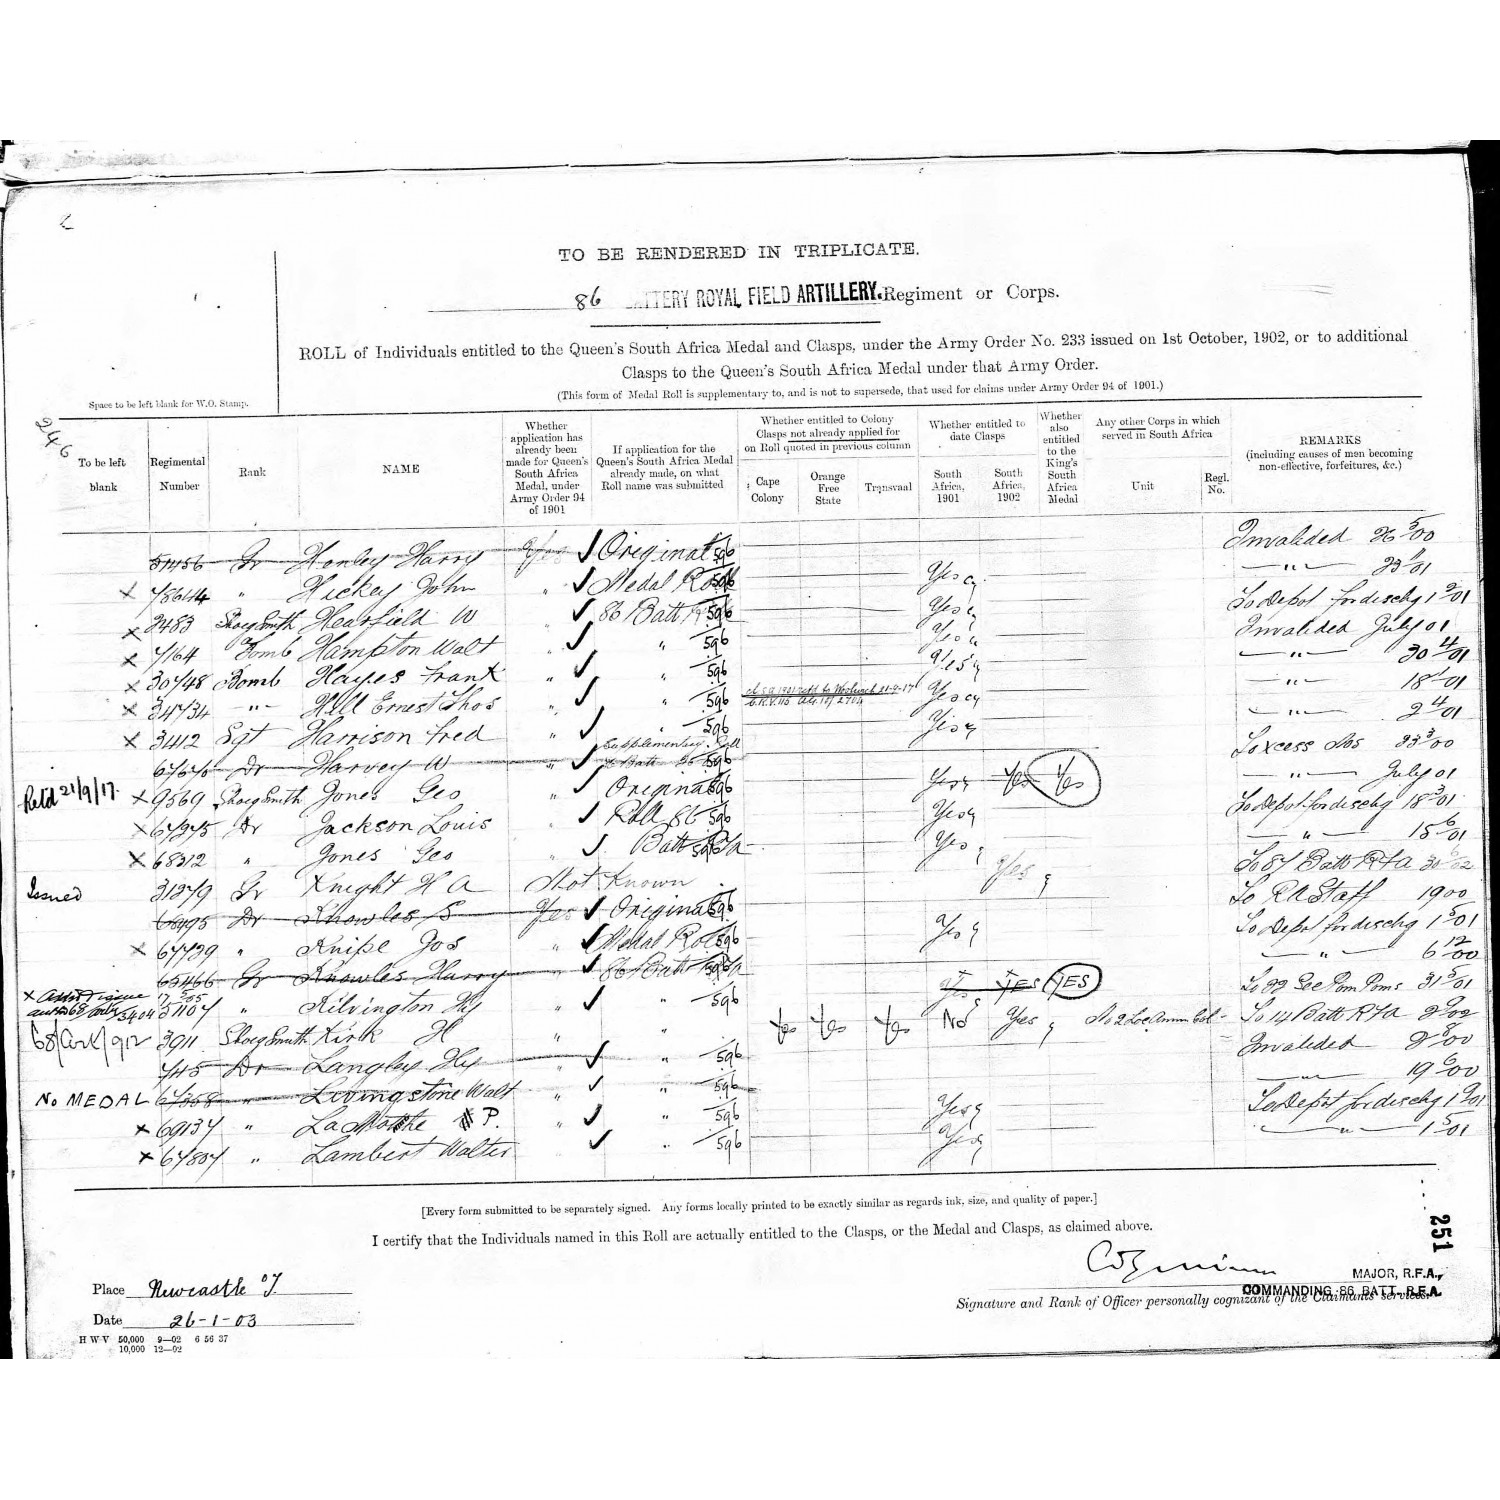 TO BE RENDERED IN TRIPLICATE.
86 BATTERY ROYAL FIELD ARTILLERY. Regiment or Corps.
ROLL of Individuals entitled to the Queen's South Africa Medal and Clasps, under the Army Order No. 233 issued on 1st October, 1902, or to additional
Clasps to the Queen's South Africa Medal under that Army Order.
(This form of Medal Roll is supplementary to, and is not to supersede, that used for claims under Army Order 94 of 1901.)
Space to be left blank for W.O. Stamp.
246
To be left blank
Regimental Number
Rank
NAME
Whether application has already been made for Queen's South Africa Medal, under Army Order 94 of 1901
If application for the Queen's South Africa Medal already made, on what Roll name was submitted
Whether entitled to Colony Clasps not already applied for on Roll quoted in previous column
Cape Colony
Orange Free State
Transvaal
Whether entitled to date Clasps
South Africa, 1901
South Africa, 1902
Whether also entitled to the King's South Africa Medal
Any other Corps in which served in South Africa
Unit
Regl. No.
REMARKS
(including causes of men becoming non-effective, forfeitures, &c.)
51456 Gr Hanley Harry Yes Original 596 Invalided 26/5/00
x 78644 " Hickey John " Medal Roll 596 Yes
x 2483 Shoeg Smith Hearfield W " 86 Batt 596 Yes To Depot for dischg
x 7164 Bomb Hampton Walt " " 596 Yes Invalided July 01
x 30748 Bomb Hayes Frank " " 596 Yes " 30/4/01
x 34734 " Hill Ernest Thos " " 596 Yes " 18/1/01
x 3412 Sgt Harrison Fred " " 596 Yes " 2/4/01
Dr Harvey W " Supplementary Roll 596 23/3/00
Retd 21/9/17 x 9569 Shoeg Smith Jones Geo " Original 596 Yes Yes Yes " July 01
x 67275 Dr Jackson Louis " Roll 86 596 Yes To Depot for dischg 18/3/01
x 68212 " Jones Geo Batt 596 Yes " 15/6/01
Issued 31279 Gr Knight H A Not Known Yes To 87 Batt RFA 30/6/02
Dr Knowles S Yes Original 596 To RA Staff 1900
x 67729 " Knipe Jos " Medal Roll 596 Yes To Depot for dischg 1/5/01
65466 Gr Knowles Harry " 86 Batt " 6/12/00
51107 " Kilvington Hy " " 596 Yes YES YES Pom Poms 31/5/01
68/Art/912 3911 Shoeg Smith Kirk H " Yes Yes Yes No Yes To 14 Batt RFA
745 Dr Langley Hy " " 596 Invalided
NO MEDAL 67358 " Livingstone Walt " " 596 " 19/6/00
x 69137 " P. " " 596 Yes To Depot for dischg
x 67807 " Lambert Walter " 596 Yes " 1/5/01
[Every form submitted to be separately signed. Any forms locally printed to be exactly similar as regards ink, size, and quality of paper.]
I certify that the Individuals named in this Roll are actually entitled to the Clasps, or the Medal and Clasps, as claimed above.
251
Place Newcastle
MAJOR, R.F.A.,
COMMANDING 86 BATT. R.F.A.
Signature and Rank of Officer personally cognizant of the Claimants' services.
Date 26-1-03
H W V 50,000 9—02 6 56 37
10,000 12—02